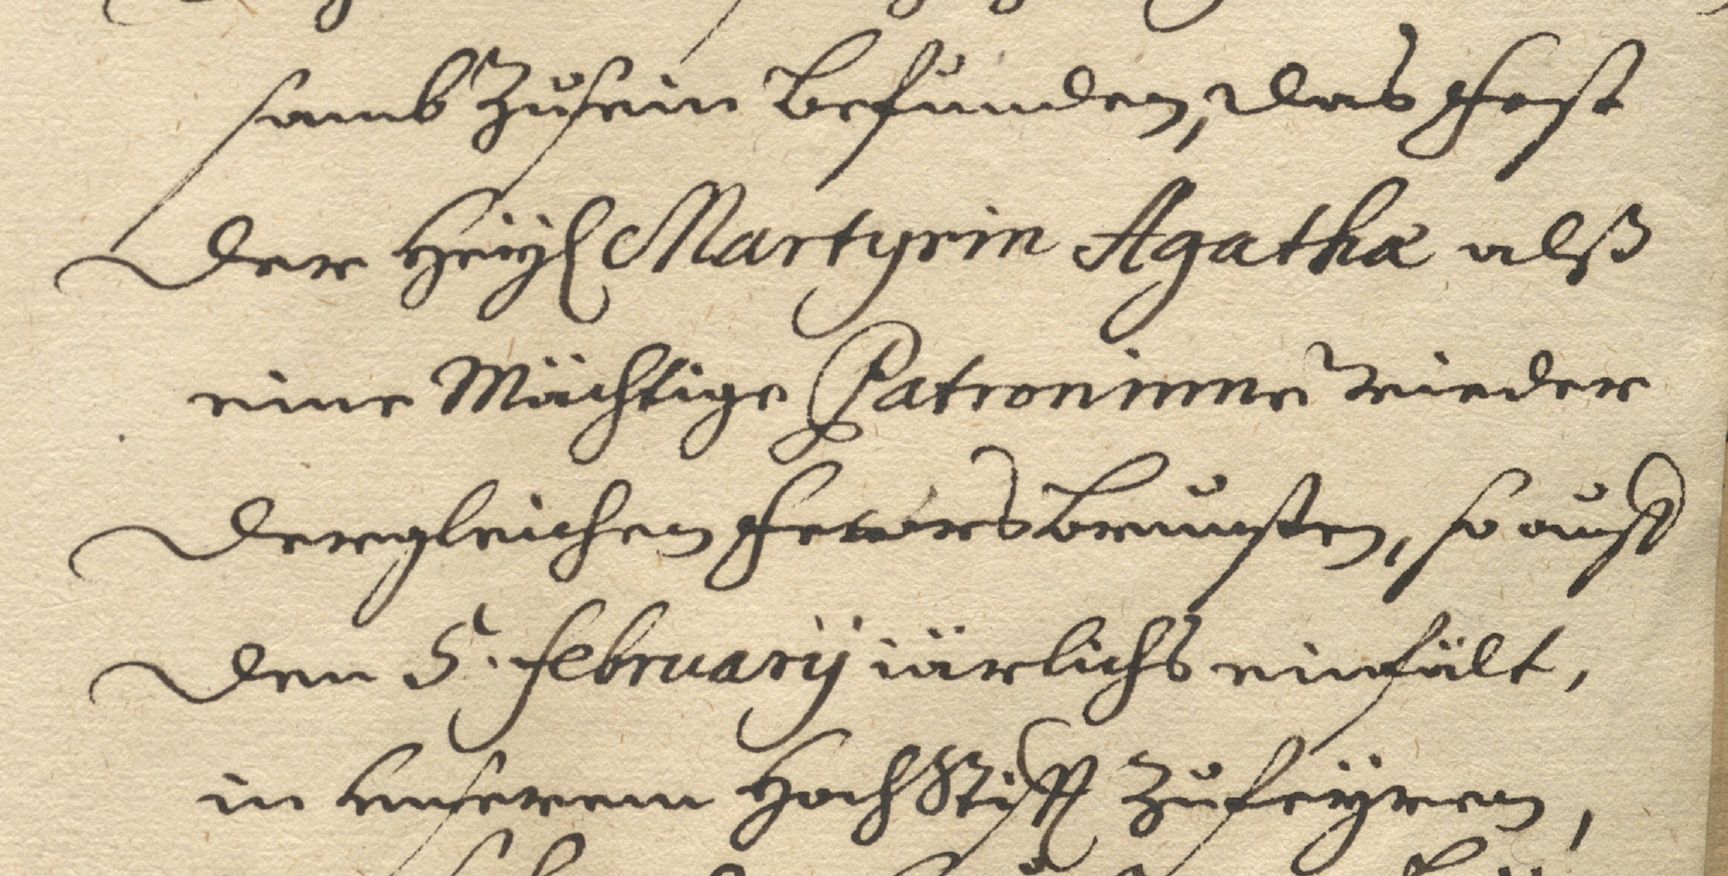 samb zusein befunden, das Fest
der Heyl Martyrin Agathæ alß
eine Mächtige Patroninne wieder
dergleichen Fewrsbrunsten, so auf
den 5. february iärlichs einfält,
in unserem HochStifft zufeyren,